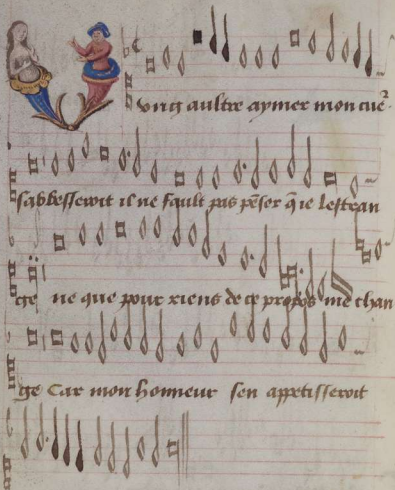 ung aultre aymer mon cue²
sabbesseroit il ne fault pas pēser q̄ ie lestran
ge ne que pour riens de ce propos me chan
ge Car mon honneur sen appetisseroit